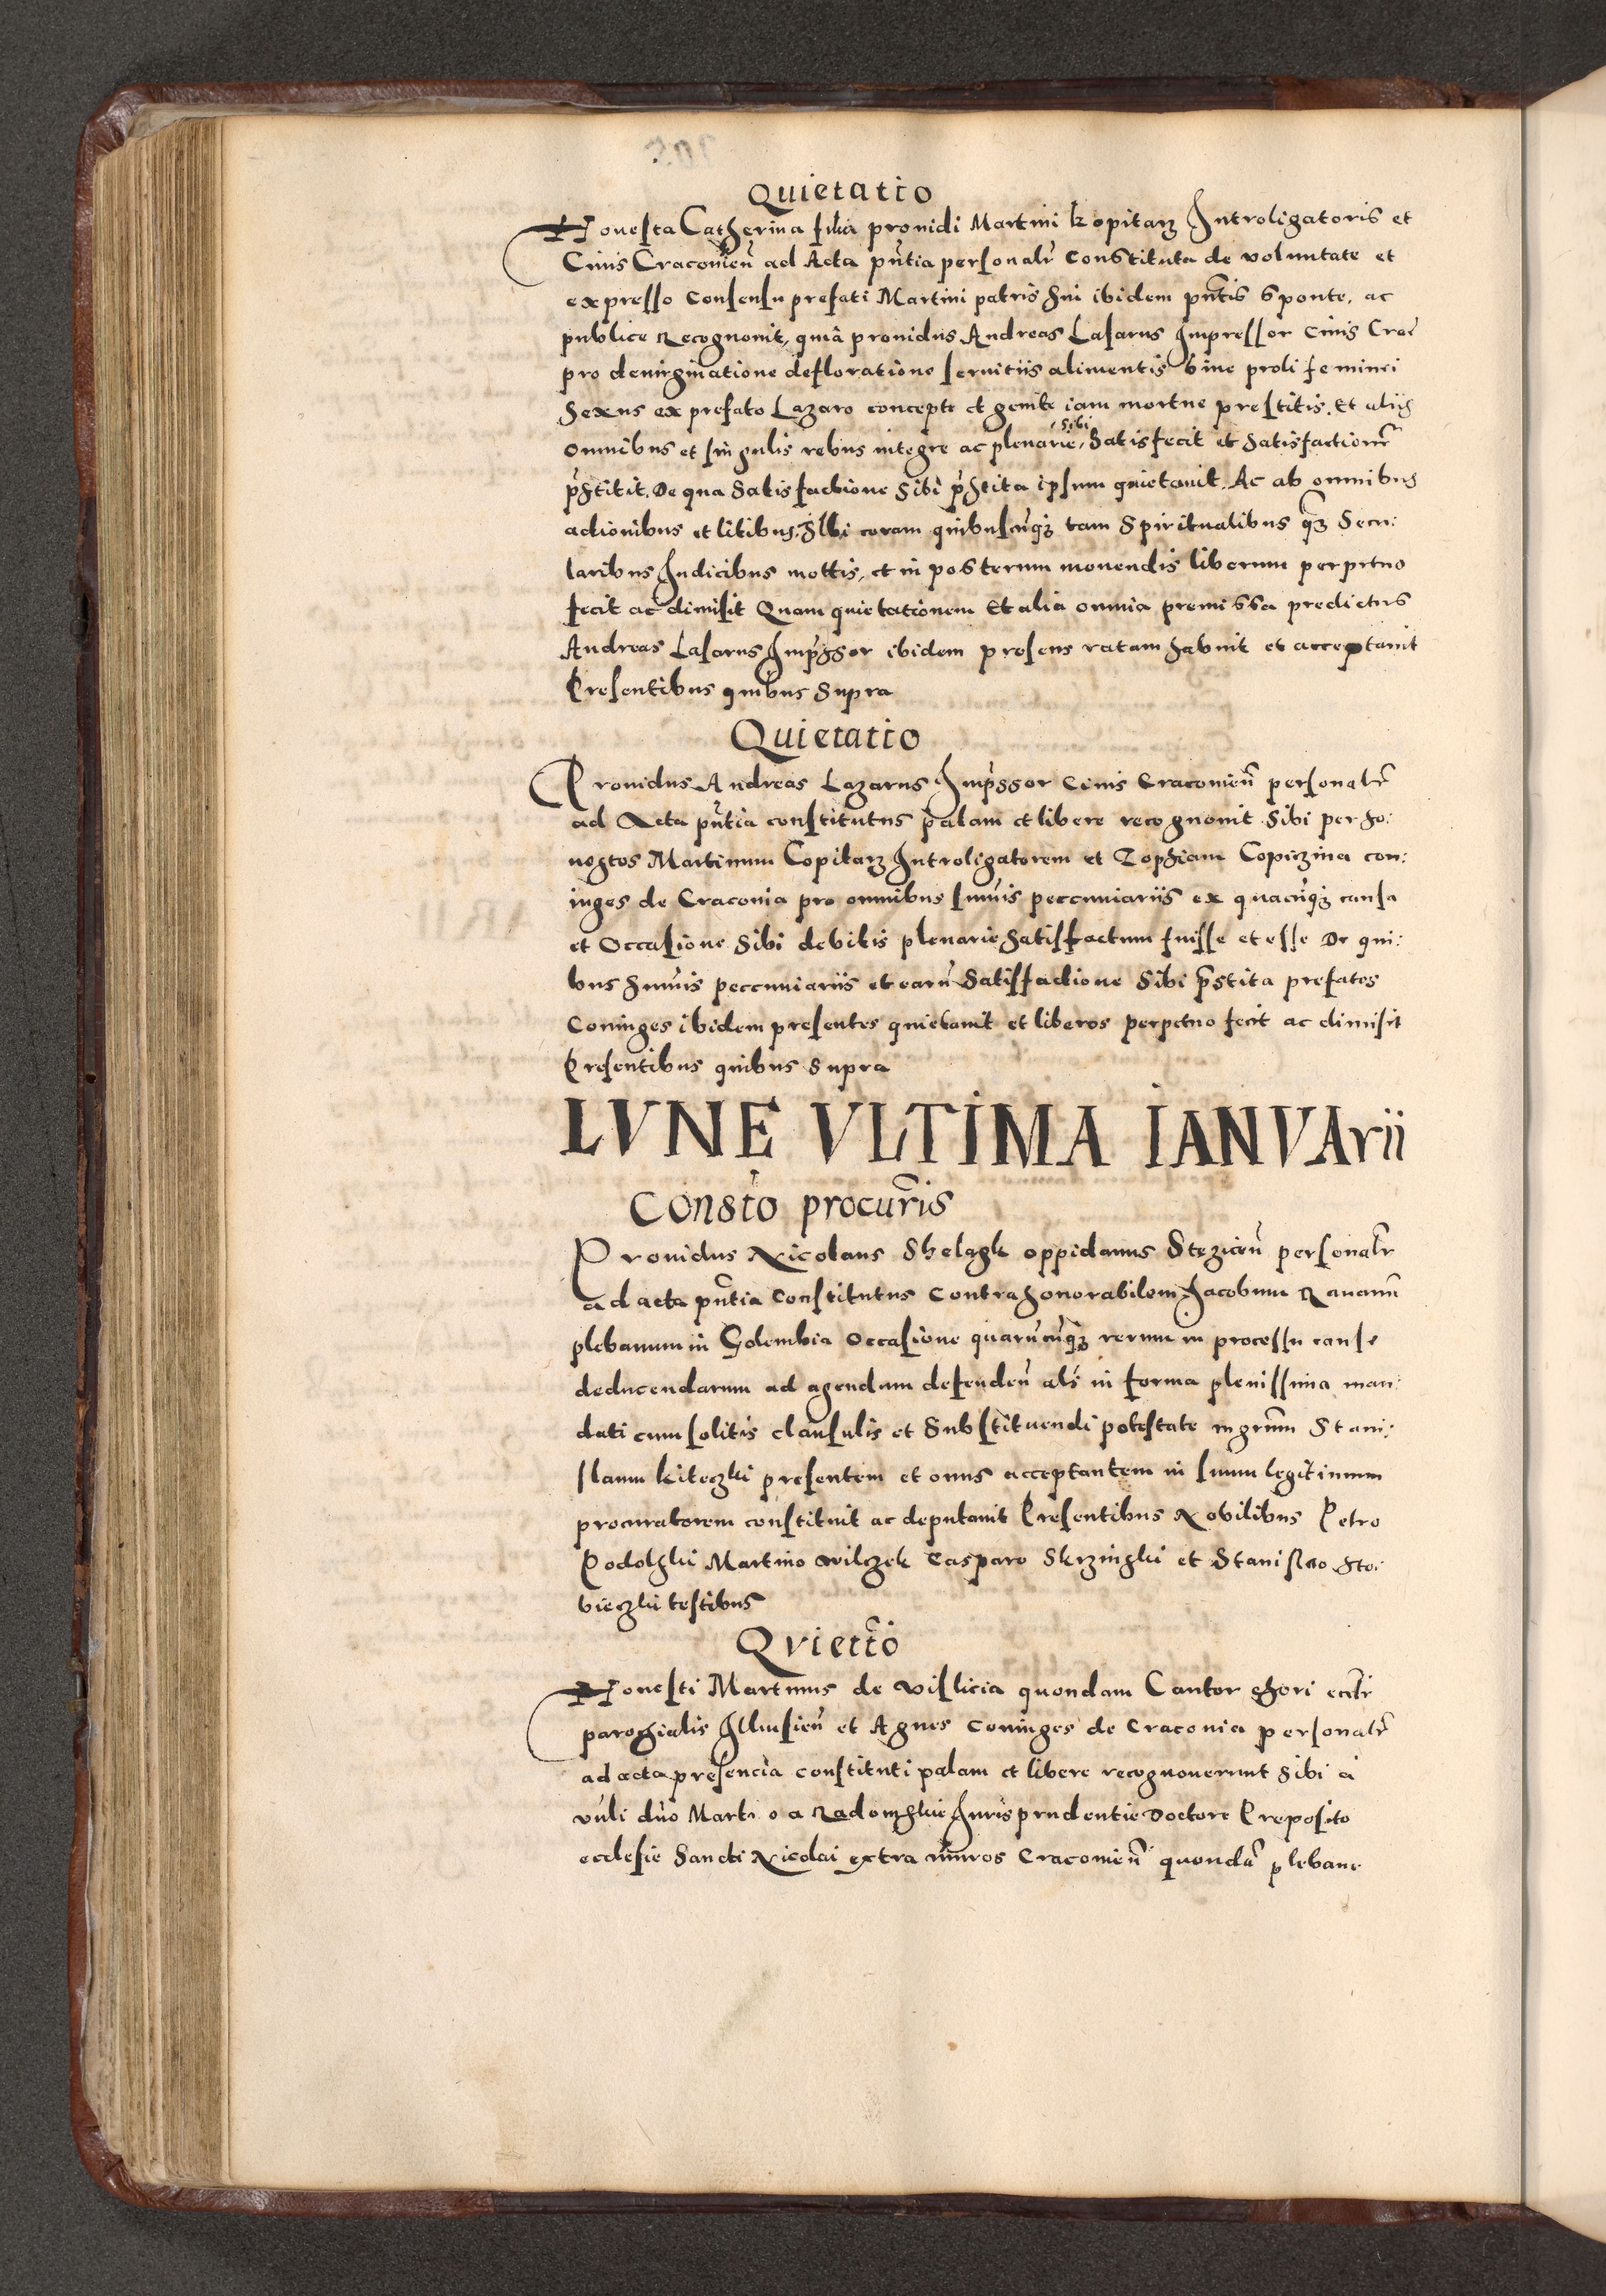 Quietatio
Honesta Catherina filia prouidi Martini kopitarz Introligatoris et
Ciuis Cracouien̄ ad Acta pn̄tia personalr̄ Constituta de voluntate et
expresso Consensu prefati Martini patris sui ibidem pn̄tis sponte, ac
publice Recognouit, quia prouidus Andreas Lasarus Impressor Ciuis Crac̄
pro deuirginatione defloratione seruitiis alimentis siue proli feminei
sexus ex prefato Lazaro concepte et genite iam mortue prestitis. Et aliis
omnibus et singulis rebus integre ac plenarie, sibi satisfecit et satisfactionē
p̄stitit. De qua satisfactione sibi p̄stita ipsum quietauit. Ac ab omnibus
actionibus et litibus, sibi coram quibuscūqз tam Spiritualibus qз Secu:
laribus Iudicibus mottis, et in posterum mouendis liberum perpetuo
fecit ac dimisit Quam quietationem Et alia omnia premissa predictus
Andreas Lasarus Imp̄ssor ibidem presens ratam habuit et acceptauit
Presentibus quibus supra
Quietatio
Prouidus Andreas Lazarus Imp̄ssor Ciuis Cracouien̄ personalr̄
ad Acta pn̄tia constitutus palam et libere recognouit sibi per ho:
nestos Martinum Copitarz Introligatorem et Zophiam Copiczina con:
iuges de Craconia pro omnibus sum̄is peccuniariis ex quacūqз causa
et Occasione sibi debitis plenarie satisfactum fuisse et esse De qui:
bus sum̄is peccuniariis et earū satisfactione sibi p̄stita prefatos
Coniuges ibidem presentes quietauit et liberos perpetuo fecit ac dimisit
Presentibus quibus supra
LVNE VLTIMA IANVArii
Constō procur̄is
Prouidus Nicolaus Skelagk oppidanus Stezicen̄ personalr̄
ad acta pn̄tia Constitutus Contra honorabilem Jacobum Rauanū
plebanum in Golembia Occasione quarūcūqз rerum in processu cause
deducendarum ad agendum defenden̄ als̄ in forma plenissima man:
dati cum solitis clausulis et substituendi potestate mgrm̄ Stani:
slaum kiteczki presentem et onus acceptantem in suum legitimum
procuratorem constituit ac deputauit Presentibus Nobilibus Petro
Podolski Martino wilczek Casparo Skrzinski et Stanislao Sto:
bieczki testibus
Qvietc̄o
Honesti Martinus de wislicia quondam Cantor chori eccl̄i
parochialis Illkusien̄ et Agnes Coniuges de Craconia personalr̄
ad acta presencia constituti palam et libere recognouerunt sibi a
vn̄li dn̄o Marti o a Radomskie Iurisprudentie Doctore Preposito
ecclesie Sancti Nicolai extra muros Cracouien̄ quondā plebano